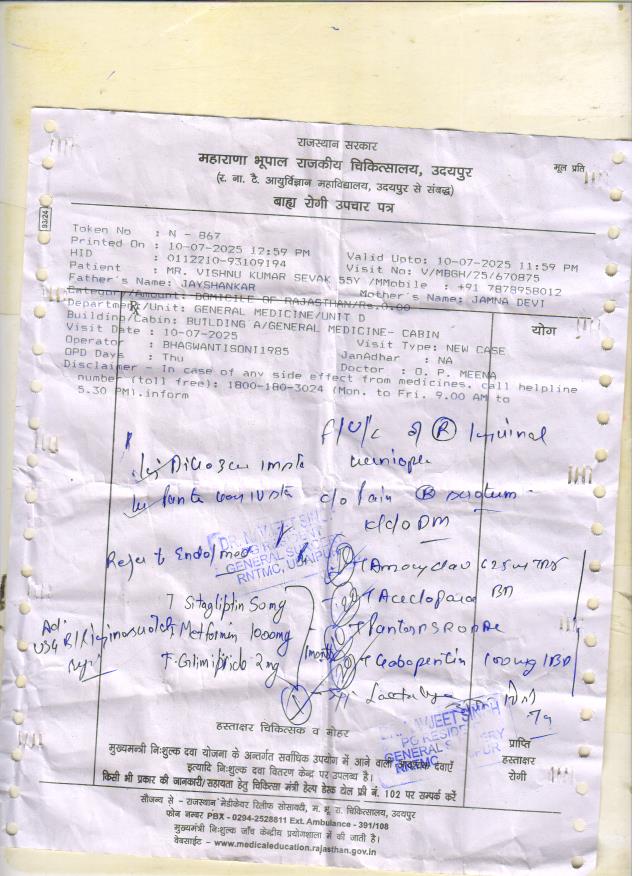 राजस्थान सरकार
महाराणा भूपाल राजकीय चिकित्सालय, उदयपुर
मूल प्रति
(र. ना. टै. आयुर्विज्ञान महाविद्यालय, उदयपुर से संबद्ध)
बाह्य रोगी उपचार पत्र
93/24
Token No : N - 867
Printed On : 10-07-2025 12:59 PM Valid Upto: 10-07-2025 11:59 PM
HID : 0112210-93109194 Visit No: V/MBGH/25/670875
Patient : MR. VISHNU KUMAR SEVAK 55Y /M Mobile : +91 7878958012
Father's Name: JAYSHANKAR Mother's Name: JAMNA DEVI
Category/Amount: DOMICILE OF RAJASTHAN/Rs.0.00
Department/Unit: GENERAL MEDICINE/UNIT D
योग
Building/Cabin: BUILDING A/GENERAL MEDICINE- CABIN
Visit Date : 10-07-2025 Visit Type: NEW CASE
Operator : BHAGWANTISONI1985 JanAdhar : NA
OPD Days : Thu Doctor : O. P. MEENA
Disclaimer - In case of any side effect from medicines. call helpline
number (toll free): 1800-180-3024 (Mon. to Fri. 9.00 AM to
5.30 PM).inform
F/U/C of R Inguinal
c/o Pain R scrotum
K/C/O DM
Refer to Endo/med
GENERAL SURGERY
RNTMC, UDAIPUR
T Amoxyclav 625mg TDS
T Sitagliptin 50mg
T Aceclopara BD
Adv
T Metformin 1000mg
T Glimipride 2mg
1 month
T Gabapentin 100mg BD
PG RESIDENT
GENERAL SURGERY
RNTMC
हस्ताक्षर चिकित्सक व मोहर
मुख्यमंत्री निःशुल्क दवा योजना के अन्तर्गत सर्वाधिक उपयोग में आने वाली आवश्यक दवाएँ
इत्यादि निःशुल्क दवा वितरण केन्द्र पर उपलब्ध है।
किसी भी प्रकार की जानकारी/सहायता हेतु चिकित्सा मंत्री हेल्प डेस्क टोल फ्री नं. 102 पर सम्पर्क करें
प्राप्ति
हस्ताक्षर
रोगी
सौजन्य से - राजस्थान मेडीकेयर रिलीफ सोसायटी, म. भू. रा. चिकित्सालय, उदयपुर
फोन नम्बर PBX - 0294-2528811 Ext. Ambulance - 391/108
मुख्यमंत्री निःशुल्क जाँच केंद्रीय प्रयोगशाला में की जाती है।
वेबसाईट - www.medicaleducation.rajasthan.gov.in